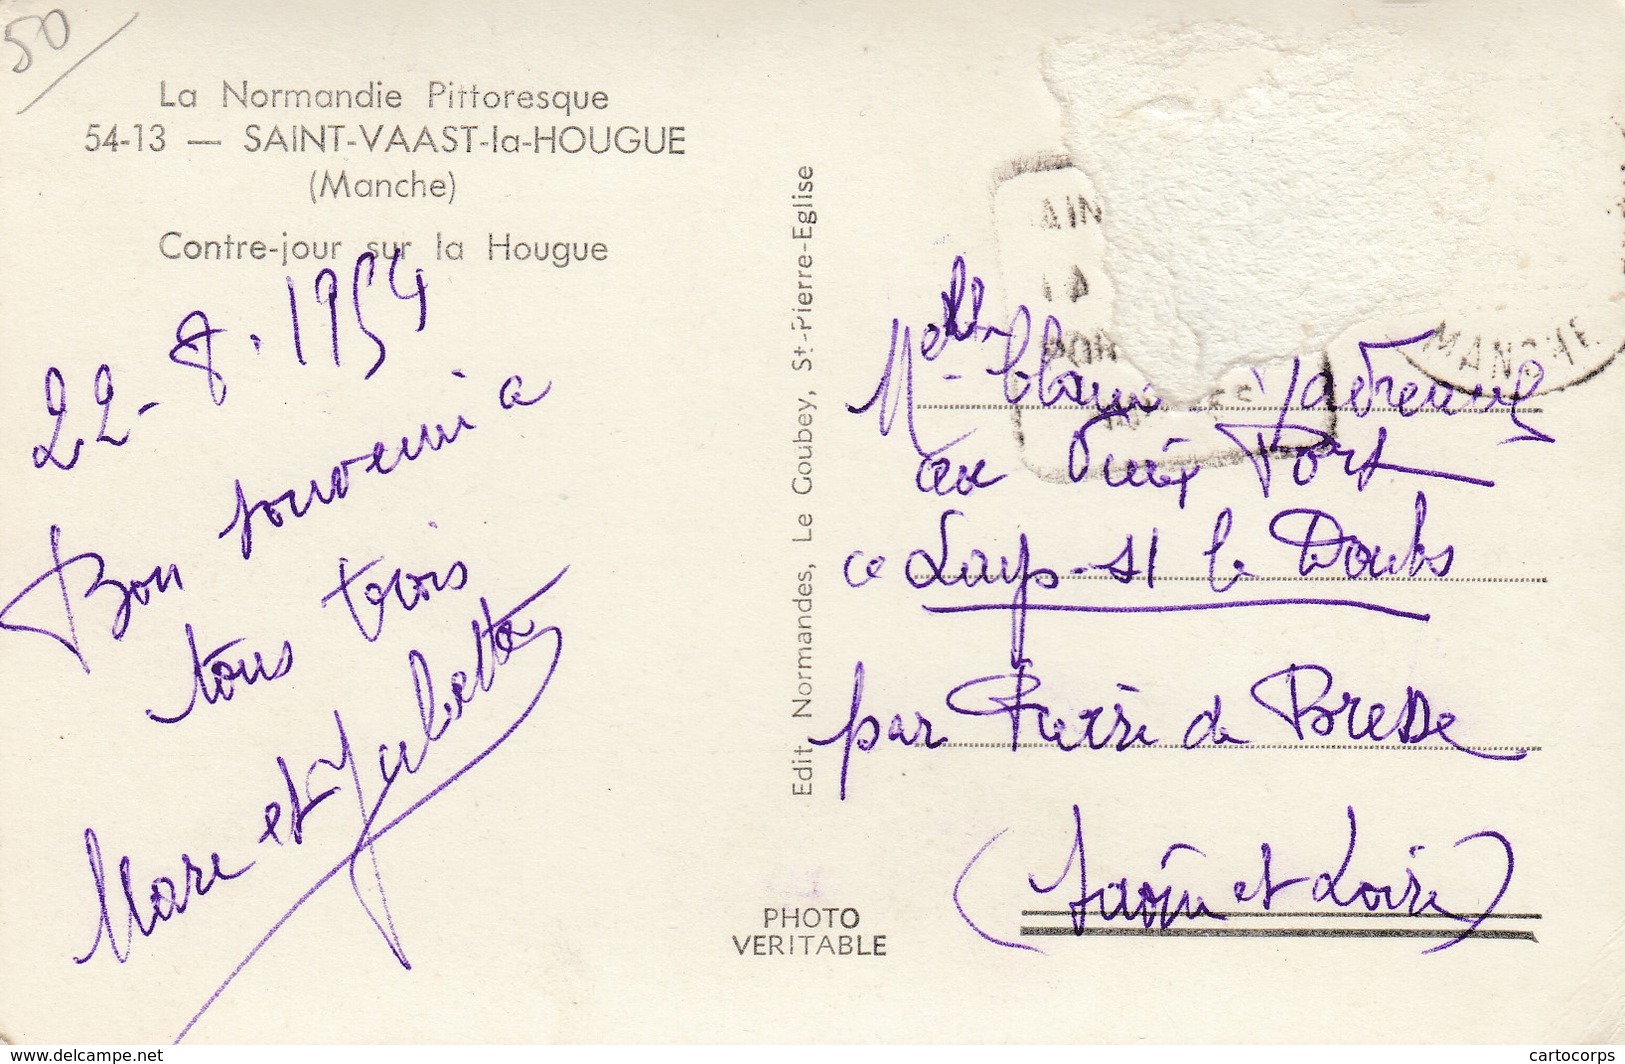 50
La Normandie Pittoresque
54-13 — SAINT-VAAST-la-HOUGUE
(Manche)
Contre-jour sur la Hougue
22-8.1954
Bon souvenir a
tous trois
Marc et
Edit Normandes, Le Goubey, St-Pierre-Eglise
PHOTO
VERITABLE
AIN
MANCHE
Melle
au Vieux Port
à Lays-s/ le Doubs
par Pierre de Bresse
(Saône et Loire)
www.delcampe.net
cartocorps